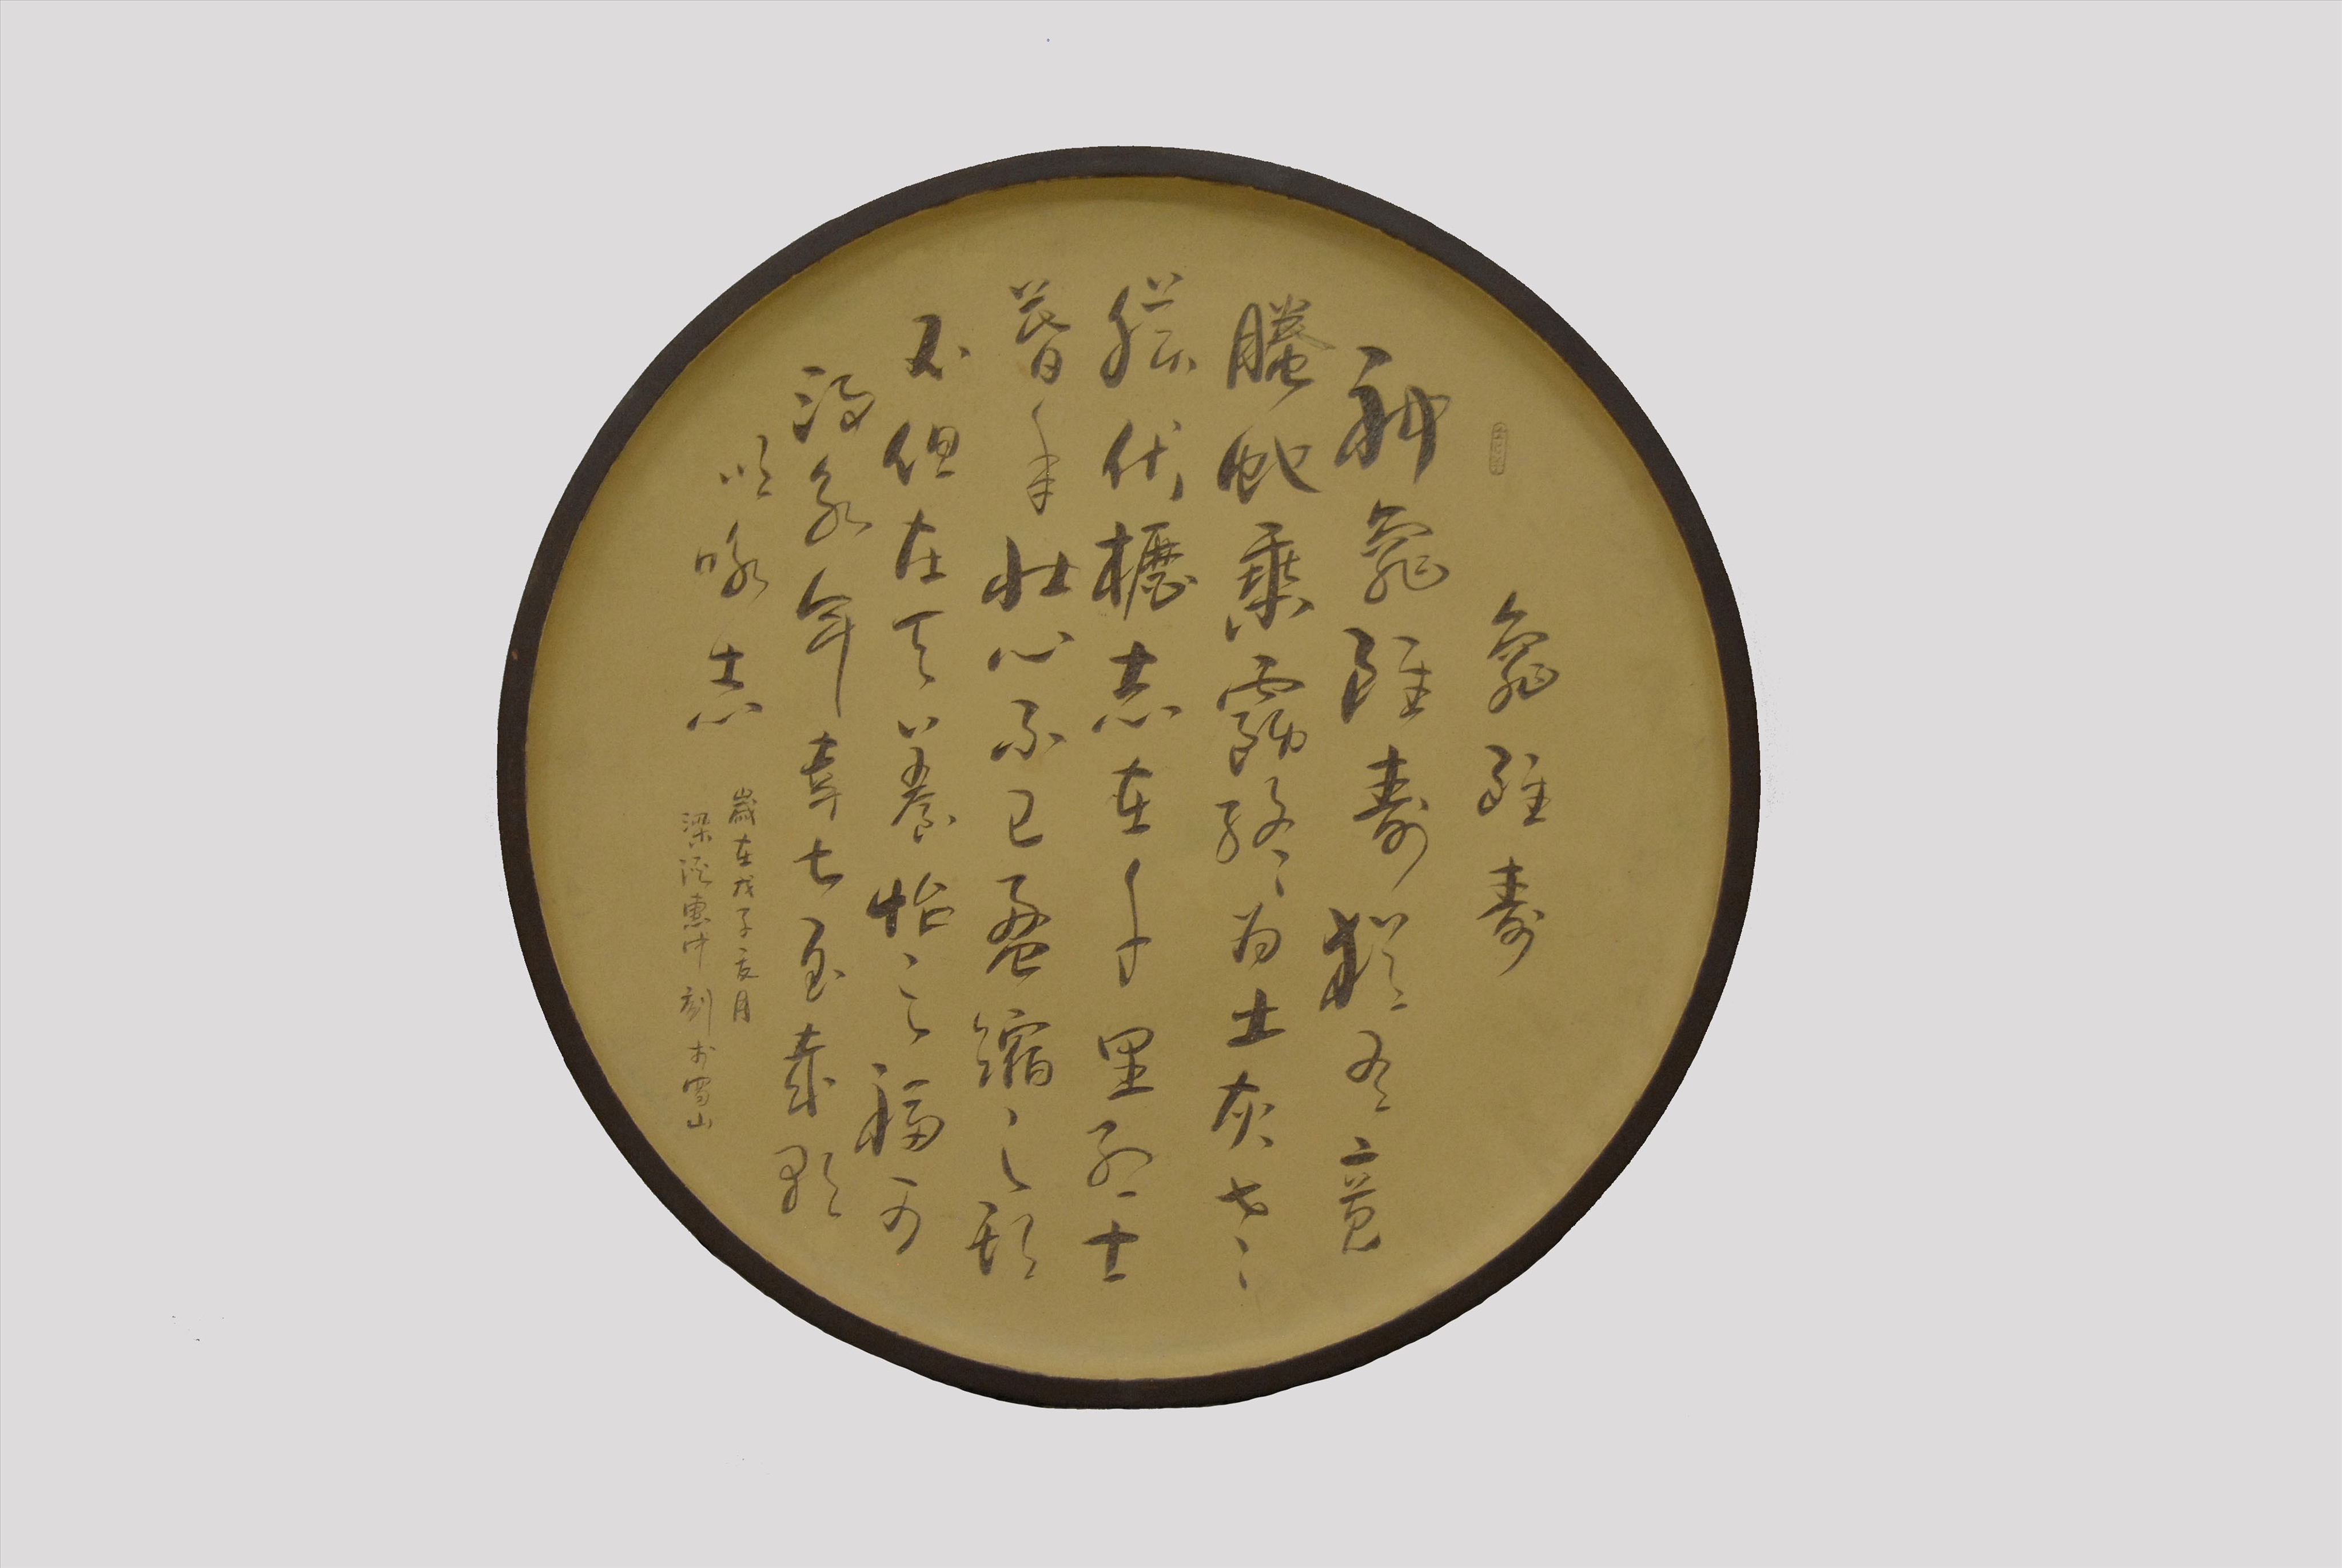 龜雖壽
神龜雖壽猶有竟
螣蛇乘霧終為土灰老
驥伏櫪志在千里烈士
暮年壯心不已盈縮之期
不但在天養怡之福可
得永年幸甚至哉歌
以咏志
歲在戊子夏月
梁溪惠中刻於蜀山